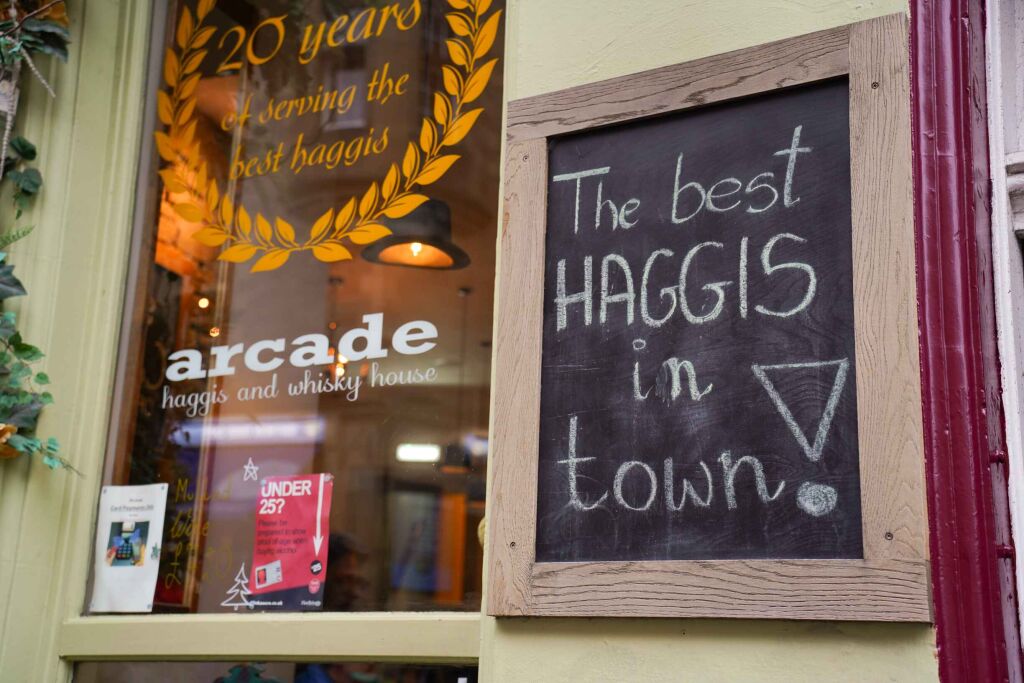 20 years
of serving the
best haggis
arcade
haggis and whisky house
Card Payments
UNDER
25?
Please be
prepared to show
proof of age when
buying alcohol
The best
HAGGIS
in
town!